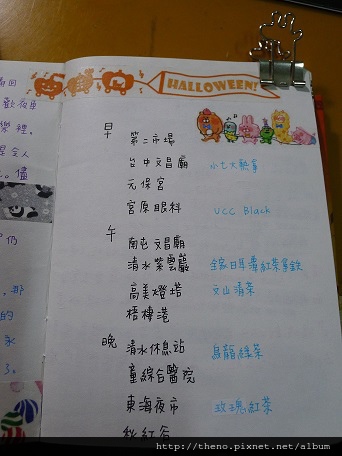 HALLOWEEN!
早 第二市場
台中文昌廟 小七大熱拿
元保宮
宮原眼科 UCC Black
午 南屯文昌廟
清水紫雲巖 全家日月潭紅茶拿鐵
高美燈塔 文山清茶
梧棲港
晚 清水休息站 烏龍綠茶
童綜合醫院
東海夜市 玫瑰紅茶
秋紅谷
http://theno.pixnet.net/album